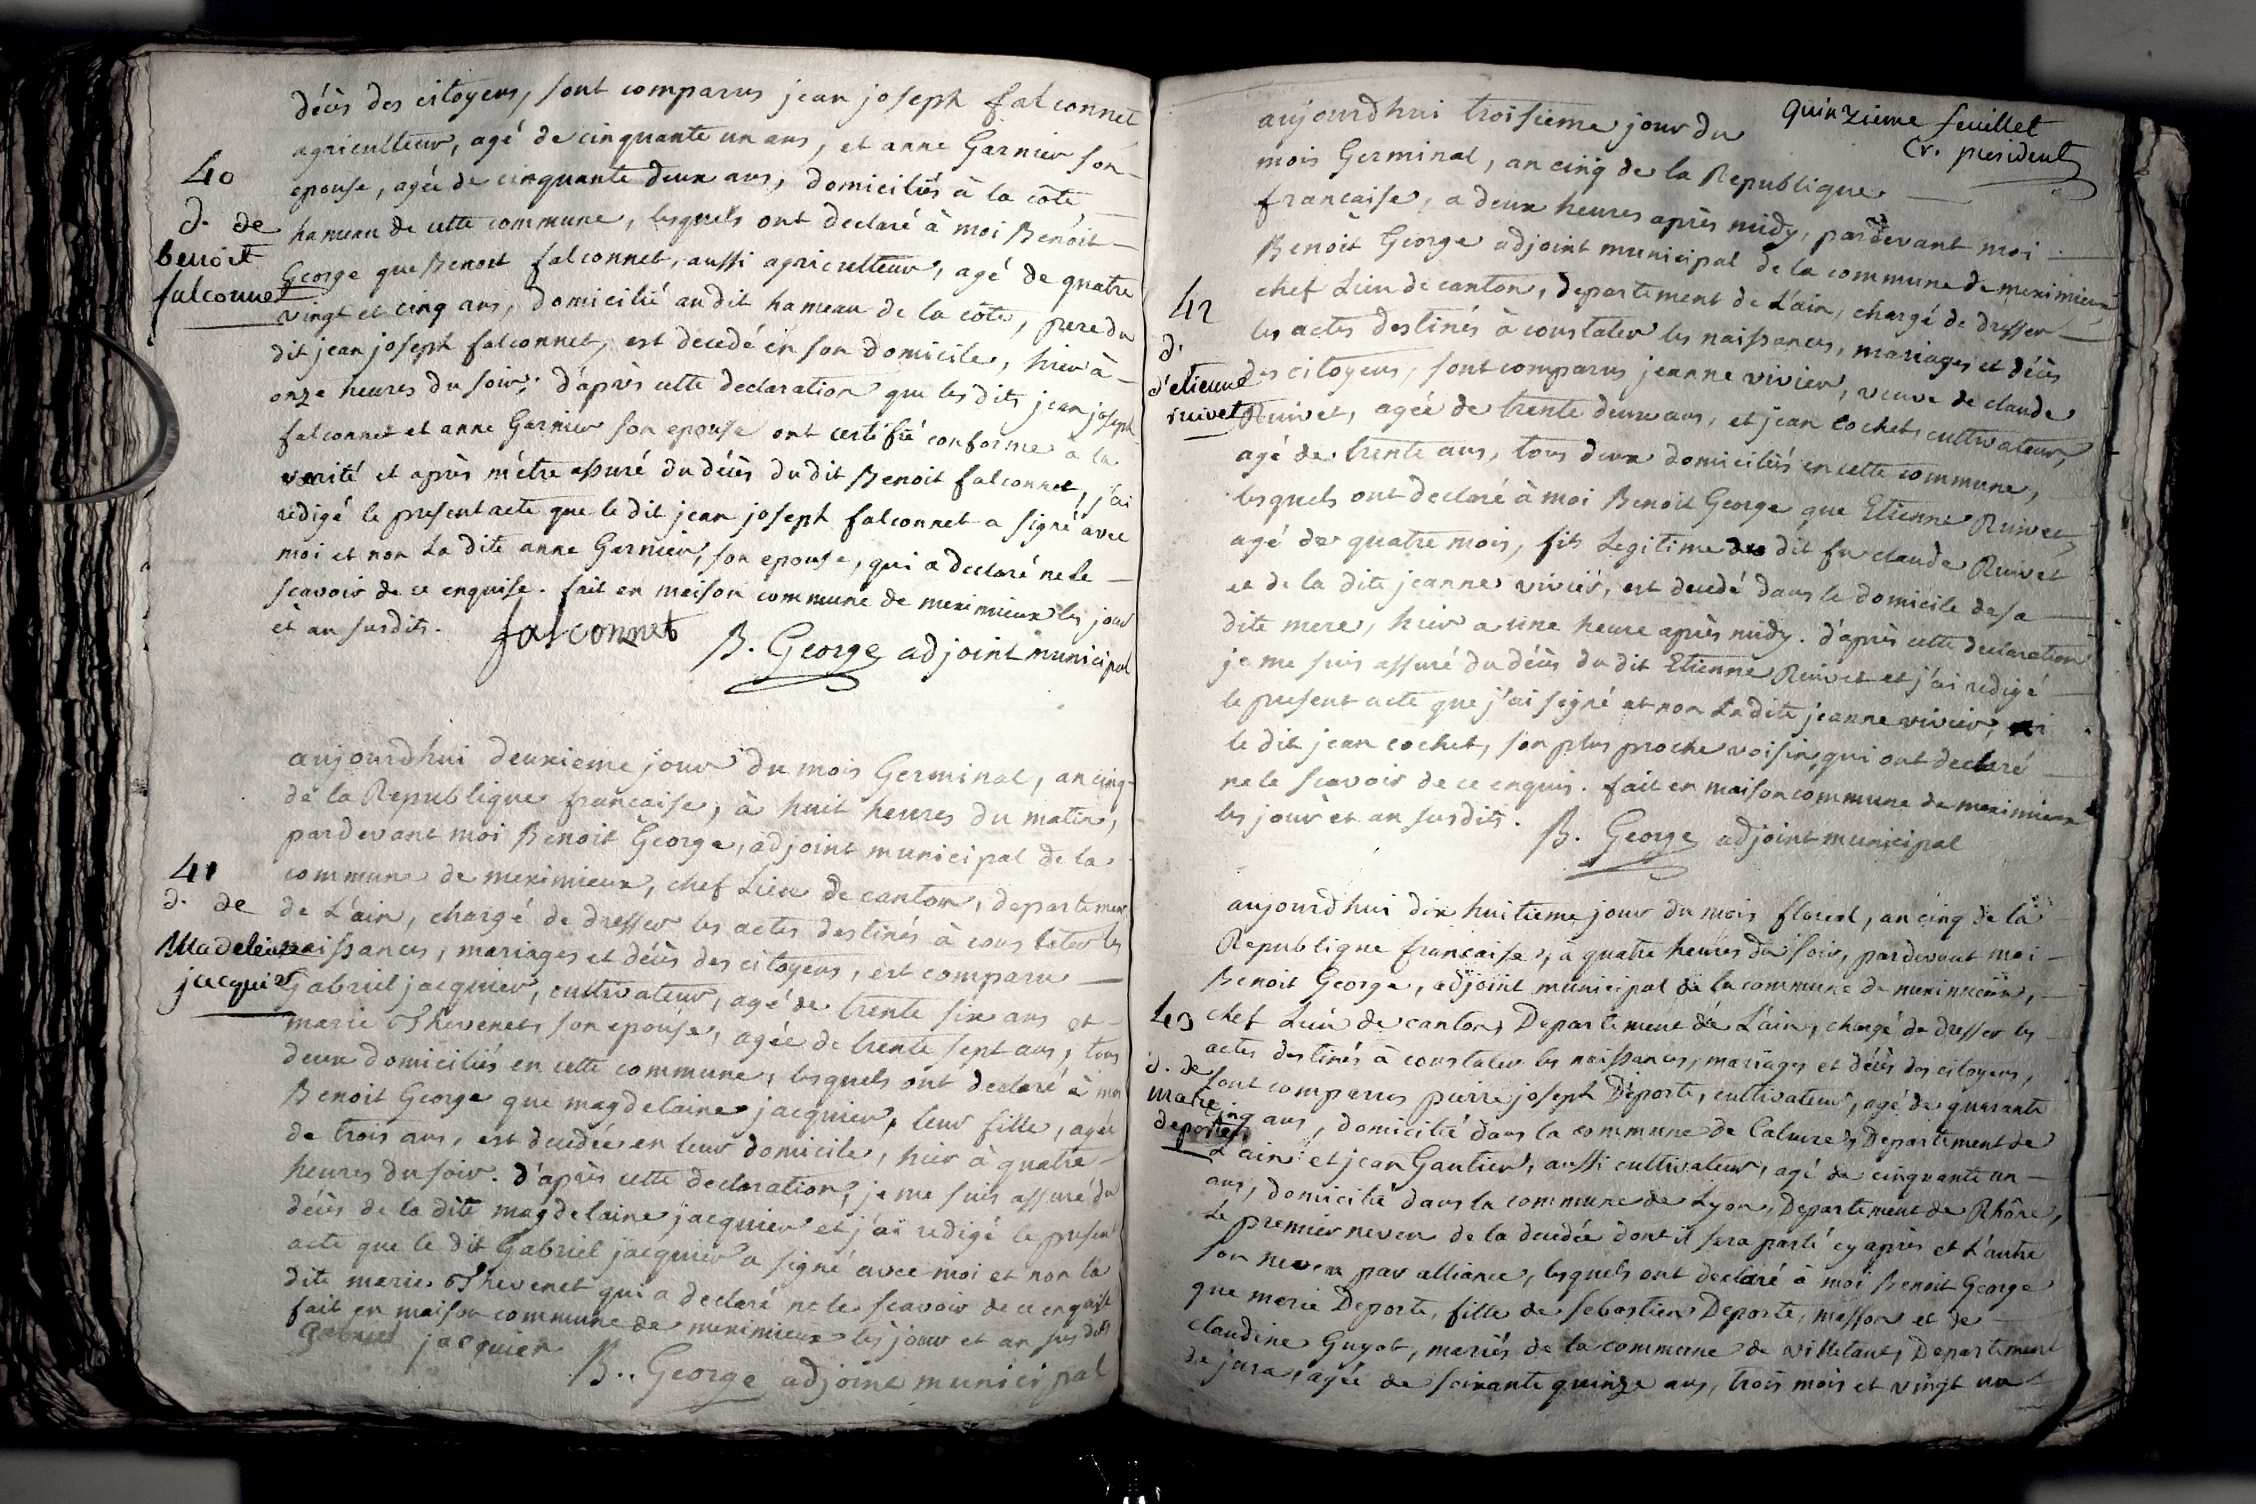 décès des citoyens, sont comparus jean joseph falconnet
agriculteur, agé de cinquante un ans, et anne Garnier son
epouse, agée de cinquante deux ans, domiciliés à la cote,
hameau de cette commune, lesquels ont declaré à moi Benoit
George que Benoit falconnet, aussi agriculteur, agé de quatre
vingt et cinq ans, domicilié au dit hameau de la cote, pere du
dit jean joseph falconnet, est decedé en son domicile, hier à
onze heures du soir; d'après cette declaration que les dits jean joseph
falconnet et anne Garnier son epouse ont certifié conforme à la
verité et après m'être assuré du décès du dit Benoit falconnet, j'ai
redigé le present acte que le dit jean joseph falconnet a signé avec
moi et non La dite anne Garnier, son epouse, qui a declaré ne le
scavoir de ce enquise. fait en maison commune de meximieux les jour
et an susdits.
falconnet
B. George adjoint municipal
40
d. de
benoit
falconnet
aujourdhui deuxieme jour du mois Germinal, an cinq
de la Republique francaise, à huit heures du matin,
pardevant moi Benoit George, adjoint municipal de la
commune de meximieux, chef Lieu de canton, departement
de L'ain, chargé de dresser les actes destinés à constater les
naissances, mariages et décès des citoyens, est comparu
Gabriel jacquier, cultivateur, agé de trente six ans et
marie Thevenet, son epouse, agée de trente sept ans, tous
deux domiciliés en cette commune, lesquels ont declaré à moi
Benoit George que magdelaine jacquier, leur fille, agée
de trois ans, est decedée en leur domicile, hier à quatre
heures du soir. d'après cette declaration, je me suis assuré du
décès de la dite magdelaine jacquier et j'ai redigé le present
acte que le dit Gabriel jacquier a signé avec moi et non la
dite marie Thevenet qui a declaré ne le scavoir de ce enquise
fait en maison commune de meximieux les jour et an susdits
Gabriel jacquier
B. George adjoint municipal
41
d. de
Madeleine
jacquier
quinzieme feuillet
Cr. president
aujourdhui troisieme jour du
mois Germinal, an cinq de la Republique
francaise, a deux heures après midy, pardevant moi
Benoit George adjoint municipal de la commune de meximieux
chef Lieu de canton, departement de L'ain, chargé de dresser
les actes destinés à constater les naissances, mariages et décès
des citoyens, sont comparus jeanne vivier, veuve de claude
Ruivet, agée de trente deux ans, et jean Cochet cultivateur,
agé de trente ans, tous deux domiciliés en cette commune,
lesquels ont declaré à moi Benoit George que Etienne Ruivet,
agé de quatre mois, fils Legitime du dit fu claude Ruivet
et de la dite jeanne vivier, est decedé dans le domicile de sa
dite mere, hier a une heure après midy. d'après cette declaration
je me suis assuré du décès du dit Etienne Ruivet et j'ai redigé
le present acte que j'ai signé et non La dite jeanne vivier, ni
le dit jean cochet, son plus proche voisin qui ont declaré
ne le scavoir de ce enquis. fait en maison commune de meximieux
les jour et an susdits.
B. George adjoint municipal
42
d.
d'etienne
ruivet
aujourdhui dix huitieme jour du mois floreal, an cinq de la
Republique francaise, à quatre heures du soir, pardevant moi
Benoit George, adjoint municipal de la commune de meximieux,
chef Lieu de canton, Departement de L'ain, chargé de dresser les
actes destinés à constater les naissances, mariages et décès des citoyens,
sont comparus pierre joseph Deporte, cultivateur, agé de quarante
cinq ans, domicilié dans la commune de Caluire, Departement de
L'ain et jean Gautier, aussi cultivateur, agé de cinquante un
ans, domicilié dans la commune de Lyon, Departement de Rhône,
Le premier neveu de la decedée dont il sera parlé cy après et L'autre
son neveu par alliance, lesquels ont declaré à moi Benoit George
que marie Deporte, fille de sebastien Deporte, masson et de
claudine Guyot, mariés de la commune de villetant, Departement
de jura, agée de soixante quinze ans, trois mois et vingt un
43
d. de
marie
deporte